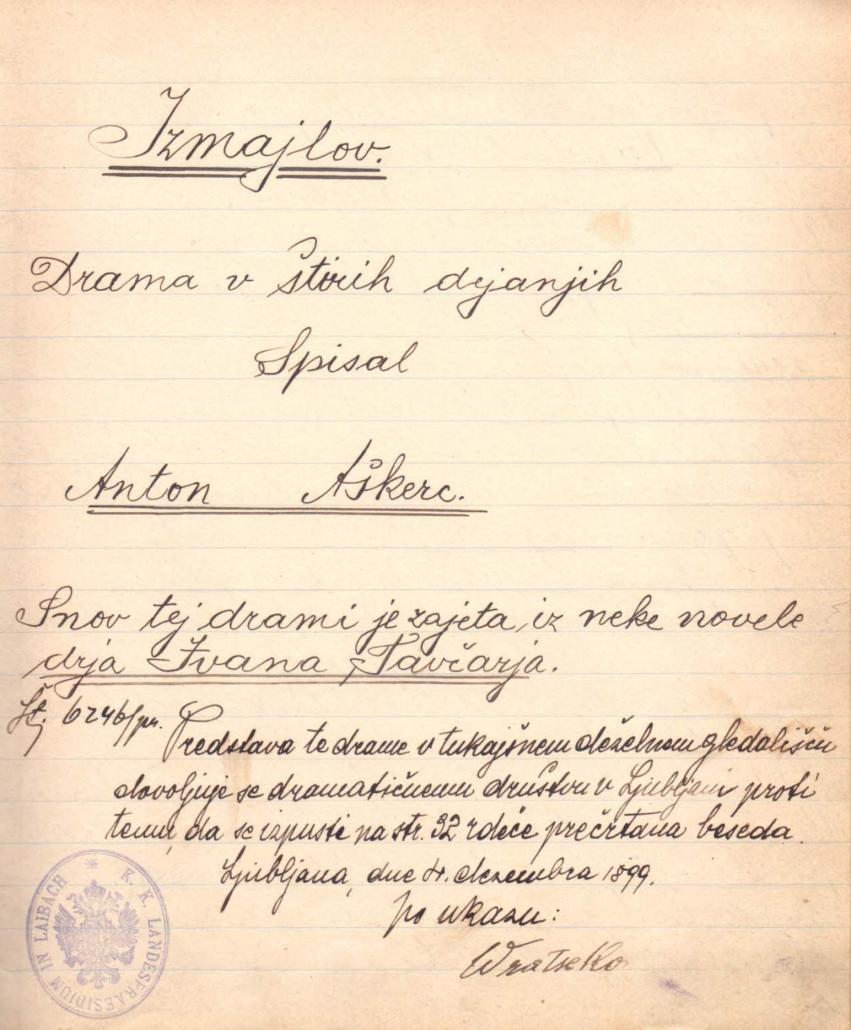 Izmajlov.
Drama v štirih dejanjih
Spisal
Anton Aškerc.
Snov tej drami je zajeta iz neke novele
drja Ivana Tavčarja.
Št. 6246/pr. Predstava te drame v tukajšnem deželnem gledališču
dovoljuje se dramatičnemu društvu v Ljubljani proti
temu, da se izpusti na str. 32 rdeče prečrtana beseda.
Ljubljana, dne decembra 1899.
po ukazu:
K. K. LANDESPRAESIDIUM IN LAIBACH